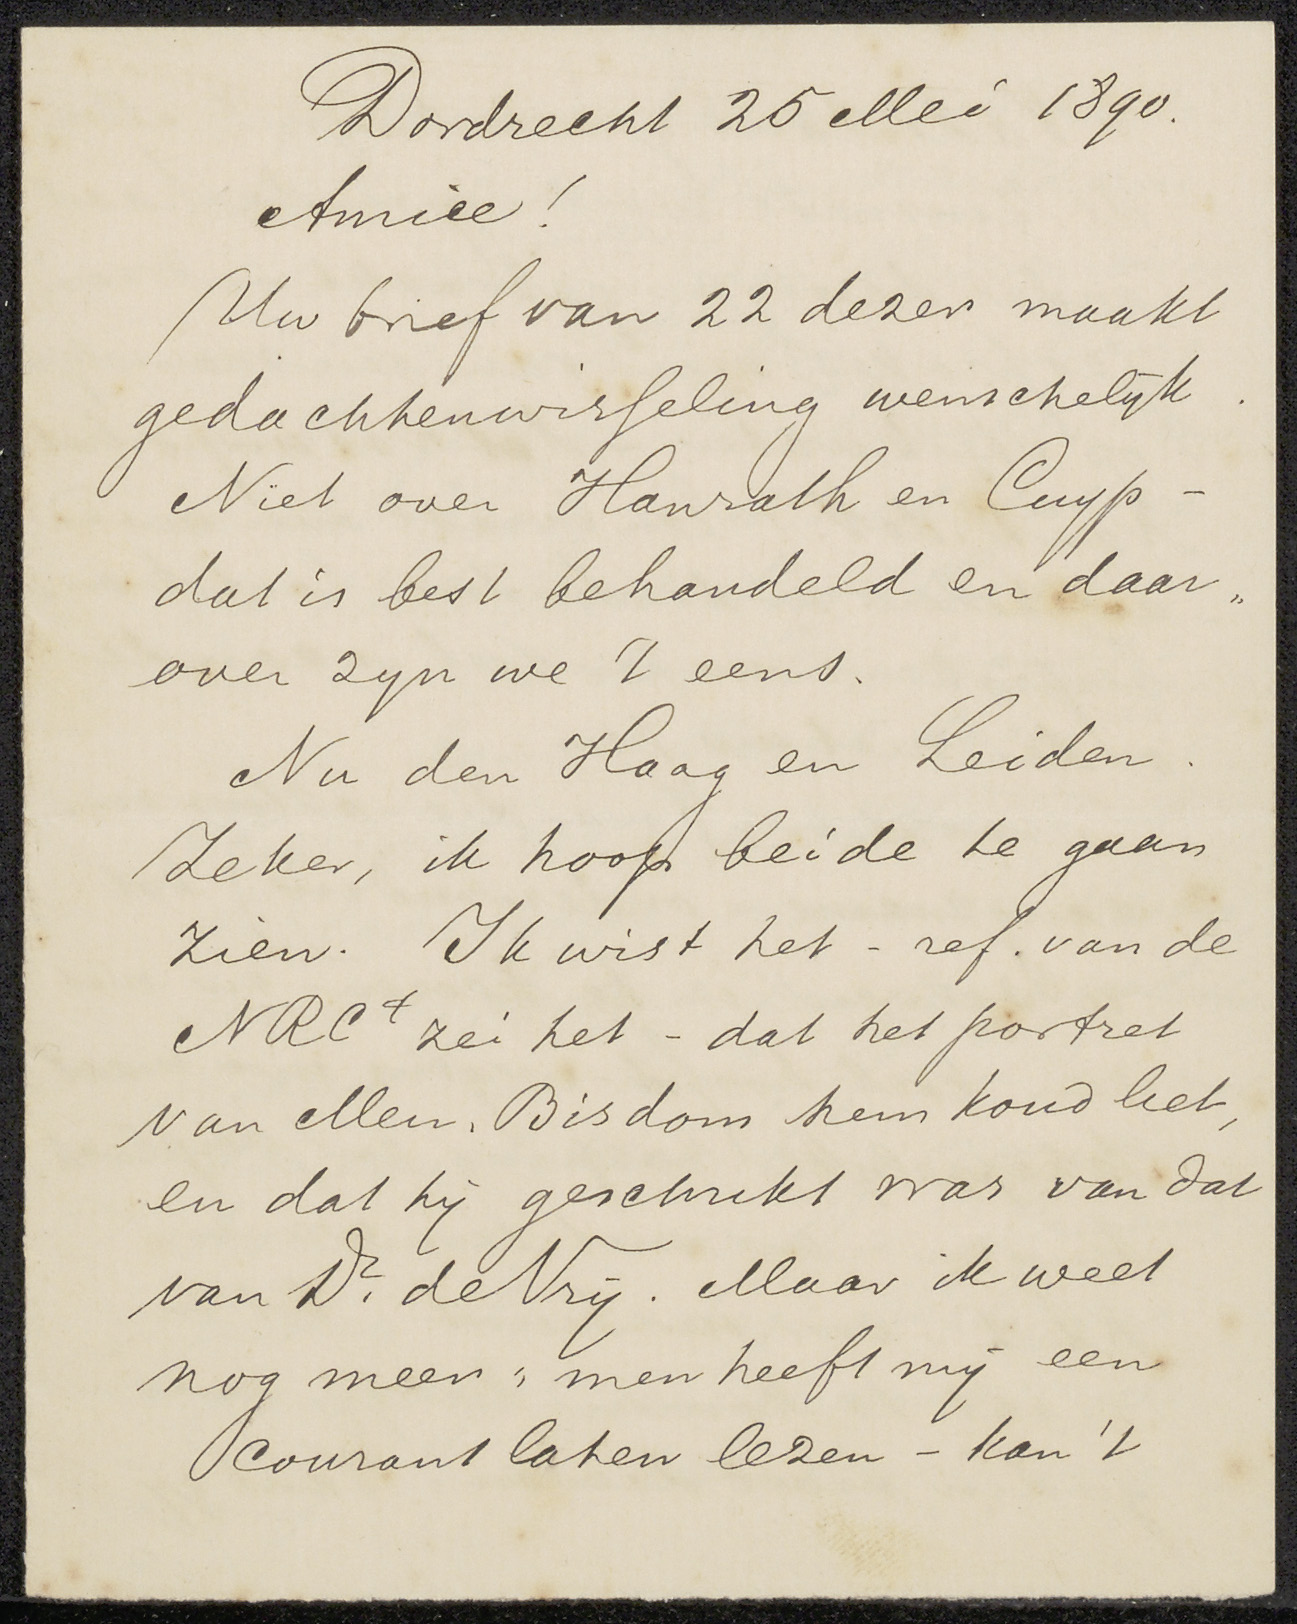 Dordrecht 25 Mei 1890.
Amice!
Uw brief van 22 dezer maakt
gedachtenwisseling wenschelijk.
Niet over Hanrath en Cuyp -
dat is best behandeld en daar„
over zyn we 't eens.
Nu den Haag en Leiden.
Zeker, ik hoop beide te gaan
zien. Ik wist het - ref. van de
NRCt zei het - dat het portret
van Mevr. Bisdom hem koud liet,
en dat hij geschrikt was van dat
van Dr. de Vrij. Maar ik weet
nog meer; men heeft mij een
courant laten lezen - kan 't